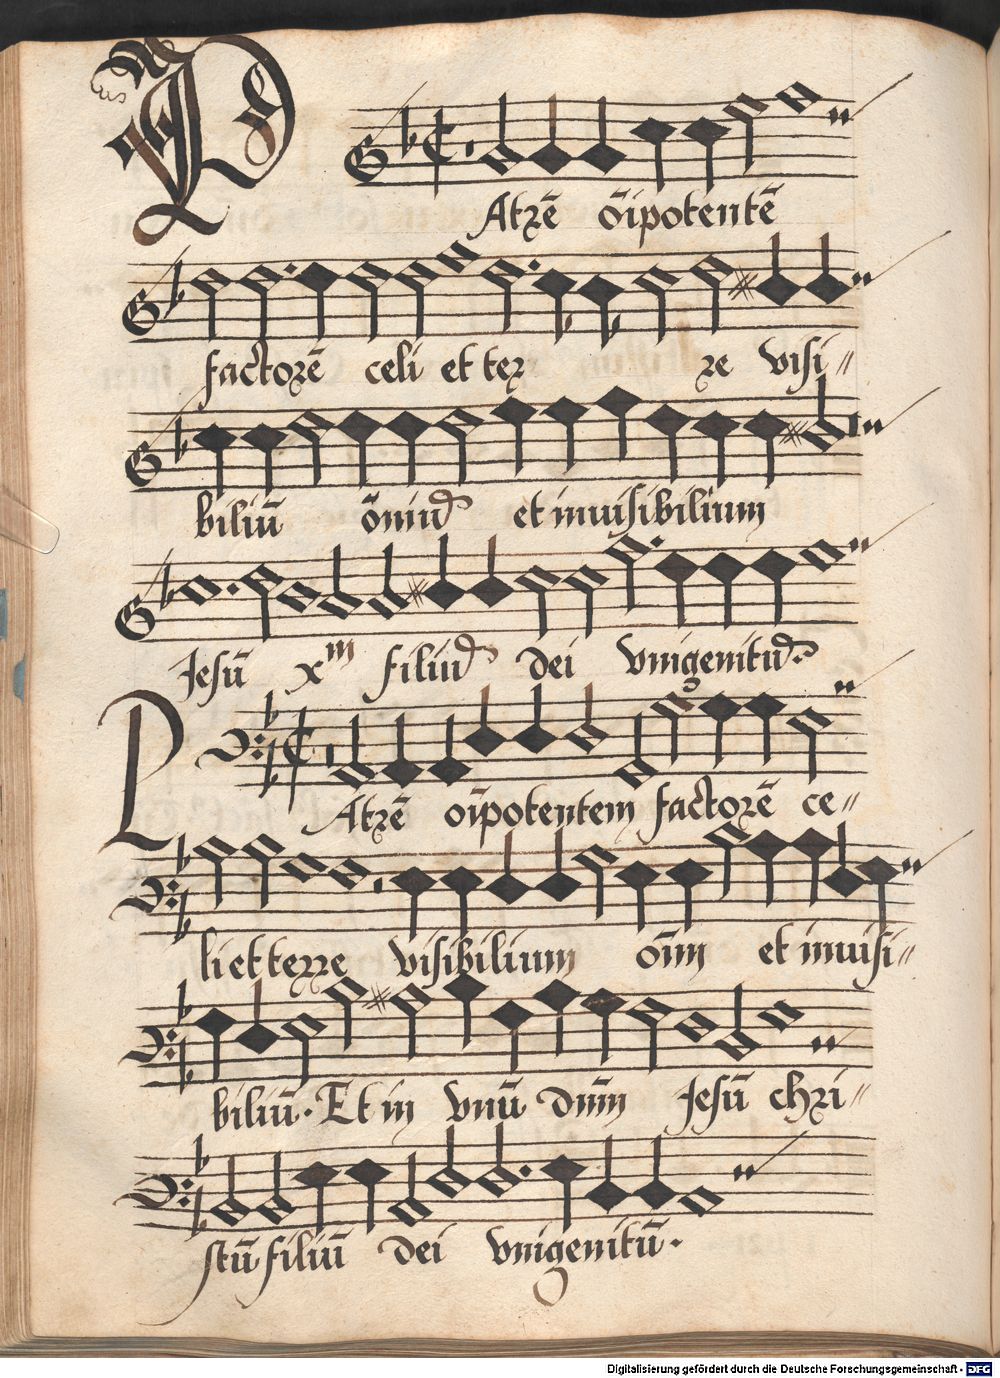 Atrẽ õipotentẽ
factorẽ celi et ter re visi〃
biliũ et inuisibilium
Jesũ xᵐ dei
Atrẽ oĩpotentem factorẽ ce〃
li et terre visibilium oĩm et inuisi〃
biliũ. Et in vnũ dñm Jesũ chri〃
stũ filiũ dei vnigenitũ.
Digitalisierung gefördert durch die Deutsche Forschungsgemeinschaft - DFG